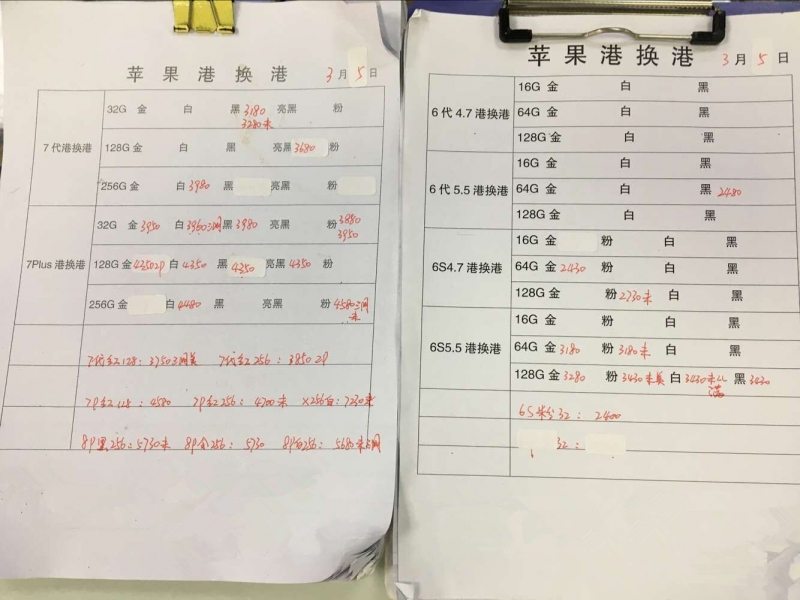 苹果港换港 3月5日
7代港换港
32G 金 白 黑 3180 亮黑 粉
3280未
128G 金 白 黑 亮黑 3680 粉
256G 金 白 3980 黑 亮黑 粉
7Plus 港换港
32G 金 3950 白 3960三网 黑 3980 粉 3880
3950
128G 金 4350 2P 白 4350 黑 4350 亮黑 4350 粉
256G 金 白 4480 黑 亮黑 粉 4580三网
未
7代红128：3750三网美 7代红256：3850 2P
7P红128：4580 7P红256：4700未 X256白：7230未
8P黑256：5730未 8P金256：5730 8P白256：5680未三网
苹果港换港 3月5日
6代4.7港换港
16G 金 白 黑
64G 金 白 黑
128G 金 白 黑
6代5.5港换港
16G 金 白 黑
64G 金 白 黑 2480
128G 金 白 黑
6S4.7港换港
16G 金 粉 白 黑
64G 金 2430 粉 白 黑
128G 金 粉 2730未 白 黑
6S5.5港换港
16G 金 粉 白 黑
64G 金 3180 粉 3180未 白 黑
128G 金 3280 粉 3430未美 白 3430未LL 黑 3430
满
6S粉32：2400
32：